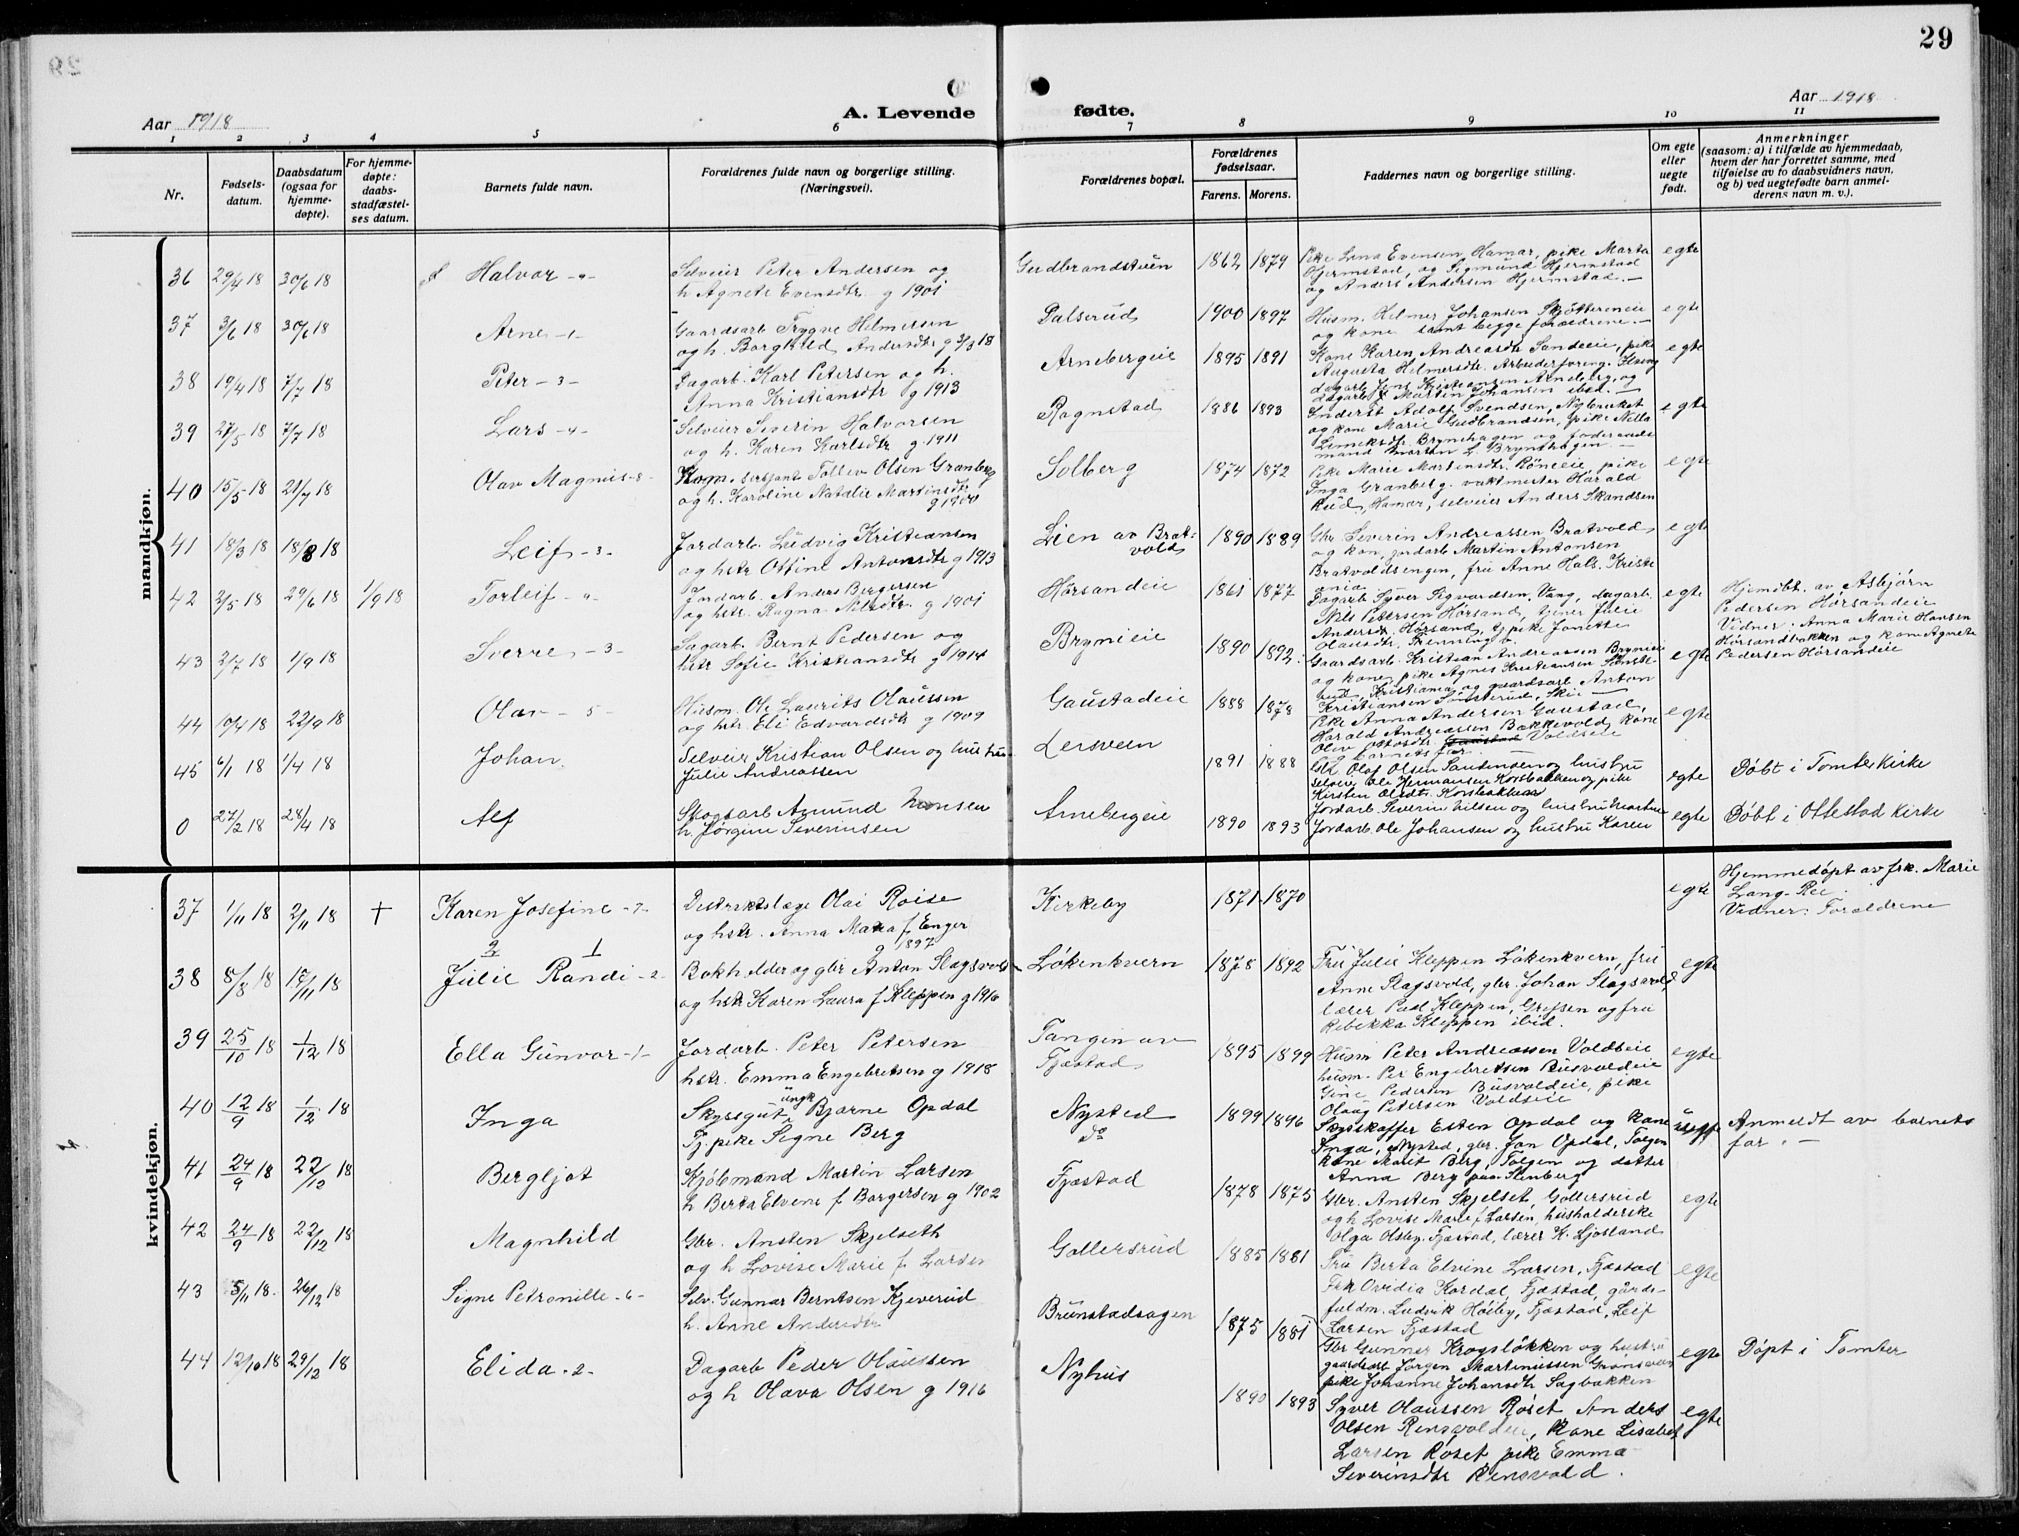 29
Aar 1918
A. Levende fødte.
Aar 1918
1 2 3 4 5 6 7 8 9 10 11
Nr.
Fødsels-
datum.
Daabsdatum
(ogsaa for
hjemme-
døpte).
For hjemme-
døpte:
daabs-
stadfæstel-
ses datum.
Barnets fulde navn.
Forældrenes fulde navn og borgerlige stilling.
(Næringsvei).
Forældrenes bopæl.
Forældrenes
fødselsaar.
Farens. Morens.
Faddernes navn og borgerlige stilling.
Om egte
eller
uegte
født.
Anmerkninger
(saasom: a) i tilfælde av hjemmedaab,
hvem der har forrettet samme, med
tilføielse av to daabsvidners navn,
og b) ved uegtefødte barn anmel-
derens navn m. v.).
mandkjøn.
36 29/4 18 30/6 18 Halvor
Selveier Peter Andersen og
h Agnete Evensdtr. g 1901
Gudbrandstuen 1862 1879
Pike Lina Evensen, Hamar, pike Marta
Hjermstad, og Sigmund Hjermstad
og Anders Andersen Hjermstad.
egte
37 3/6 18 30/6 18 Arne -1-
Gaardsarb Trygve Hilmersen
og h. Borghild Andersdtr g 3/3 18
Palserud 1900 1897
Husm. Helmer Johansen Skjøttereneie
og kone samt begge forældrene.
egte
38 19/4 18 7/7 18 Peter -3-
Dagarb. Karl Petersen og h.
Anna Kristiansdtr g 1913
Arnebergeie 1895 1891
Kone Karen Andreasdtr Sandeeie, pike
Augusta Helmersdtr. Arbeiderforeng.
dagarb Jens Kristiansen Arneberg, og
dagarb Martin Johansen ibid.
egte
39 27/5 18 7/7 18 Lars -4-
Selveier Severin Halvorsen
og h. Karen Karlsdtr g 1911
Ragnstad 1886 1893
Inderst Adolf Svendsen, Nybruket
og kone Marie Gudbrandsen, pike Nilla
Brynihagen og foderaads
mand Morten L Brynihagen
egte
40 15/5 18 21/7 18 Olav Magnus -8-
Kogn. sersjant Tollev Olsen Granberg
og h. Karoline Natalie Martinsdtr
g 1900
Solberg 1874 1872
Pike Marie Martinsdtr. Røneeie, pike
Inga Granberg. vaktmester Harald
Rud, Hamar, selveier Anders Skandsen
egte
41 18/3 18 18/8 18 Leif -3-
Jordarb. Ludvig Kristiansen
og hstr Otline Antonsdtr g 1913
Lien av Brat-
vold 1890 1889
Gbr. Severin Andreassen Bratvold
og kon, jordarb Martin Antonsen
Bratvoldsengen, fru Anne Hals. Kristi
ania
egte
42 3/5 18 29/6 18 1/9 18 Torleif
Jordarb. Anders Bergersen
og hstr. Ragna Nilsdtr. g 1901
Hørsandeie 1861 1877
Dagarb Syver Sigvardsen, Vang, dagarb.
Nils Petersen Hørsand, tjener Julie
Andersdtr. Hørsand, tj. pike Jonette
Olausdtr, Frenning
egte
Hjemdbt. av Asbjørn
Pedersen Hørsandeie
Vidner: Anna Marie Hansen
Hørsandbakken og kone Agnete
Pedersen Hørsandeie
43 2/7 18 1/9 18 Sverre -3-
Sagarb. Bernt Pedersen og
hstr Sofie Kristiansdtr g 1914
Brynieie 1890 1892
Gaardsarb. Kristian Andreassen Brynieie
og kone, pike Agnes Kristiansen Sønste-
rud, Kristiania og gaardsarb Anton
Kristiansen Sønsterud, Skie
egte
44 10/4 18 22/9 18 Olav -5-
Husm. Ole Laurits Olaussen
og hstr. Eli Edvardsdtr g 1909
Gaustadeie 1888 1878
Pike Anna Andersen Gaustad,
Harald Andreassen Bakkevold, kone
Oliv Ottosdtr. Voldseie
og barnets far.
egte
45 6/1 18 1/4 18 Johan
Selveier Kristian Olsen og hustru
Julie Andreassen
Lersveen 1891 1888
Olaf Olsen Sandengen og hustru
selveie Ole Hermansen Korsbakken og pike
Kirsten Olsdtr. Korsbakken
egte
Døbt i Tomter kirke
0 27/2 18 28/4 18 Alf
Skogsarb Amund Hansen
h. Jørgine Severinsen
Arnebergeie 1890 1893
Jordarb Severin Nilsen og hustru Martine
Jordarb Ole Johansen og hustru Karen
egte
Døbt i Ottestad kirke
kvindekjøn.
37 1/11 18 2/11 18 † Karen Josefine -7-
Distriktslæge Olai Roise
og hstr. Anna Maria f Enger
g 1897
Kirkeby 1871 1870
egte
Hjemmedøpt av frk. Marie
Lang-Ree
Vidner: Foraldrene
38 8/8 18 15/11 18 Julie Randi -2-
2 1
Bokholder og gbr Anton Slagsvold
og hstr Karen Laura f Kleppen g 1916
Løkenkvern 1878 1892
Fru Julie Kleppen Løkenkvern, fru
Anne Slagsvold, gbr. Johan Slagsvold
lærer Paul Kleppen, Grefsen og fru
Rebekka Kleppen ibid.
egte
39 25/10 18 1/12 18 Ella Gunvor -1-
Jordarb. Peter Petersen
hstr. Emma Engebretsen g 1918
Tangen av
Fjæstad 1895 1899
Husm Peter Andreassen Voldseie
husm. Per Engebretsen Busvoldeie
Gine Pedersen Busvoldeie, pike
Olaug Petersen Voldseie
egte
40 12/9 18 1/12 18 Inga
Skysgut ungk Bjarne Opdal
Tj. pike Signe Berg
Nysted
do 1899 1896
Skyskaffer Esten Opdal og kane
Inga, Nysted, gbr. Jon Opdal, Tolgen
kone Marit Berg, Tolgen og datter
Anna Berg paa Stenberg
uegte
Anmeldt av barnets
far.
41 24/9 18 22/12 18 Bergljot
Kjøbmand Martin Larsen
h Berta Elvine f Borgersen g 1902
Fjæstad 1878 1875
Gbr. Ansten Skjelset Gollersrud
og h Lovise Marie f Larsen, husholderske
Olga Olsby. Fjæstad, lærer K. Ljosland
egte
42 24/9 18 22/12 18 Magnhild
Gbr. Ansten Skjelseth
og h Lovise Marie f Larsen
Gollersrud 1885 1881
Fru Berta Elvine Larsen, Fjæstad
Frk Ovidia Kordal, Fjæstad, gårds-
fuldm. Ludvik Høiby, Fjæstad, Leif
Larsen Fjæstad
egte
43 5/11 18 26/12 18 Signe Petronille -6-
Selv. Gunnar Berntsen Kjeverud
h. Anne Andersdtr
Brunstadsagen 1875 1881
Gbr Gunner Krogsløkken og hustru
gaardsarb Jørgen Martinussen Grønsveen
pike Johanne Johansdtr Sagbakken
egte
Døpt i Tomter
44 12/10 18 29/12 18 Elida -2-
Dagarb Peder Olaussen
og h Olava Olsen g 1916
Nyhus 1890 1893
Syver Olaussen Røset Anders
Olsen Rensvoldeie, kone Lisabet
Larsen Røset pike Emma
Severinsdtr Rensvold.
egte